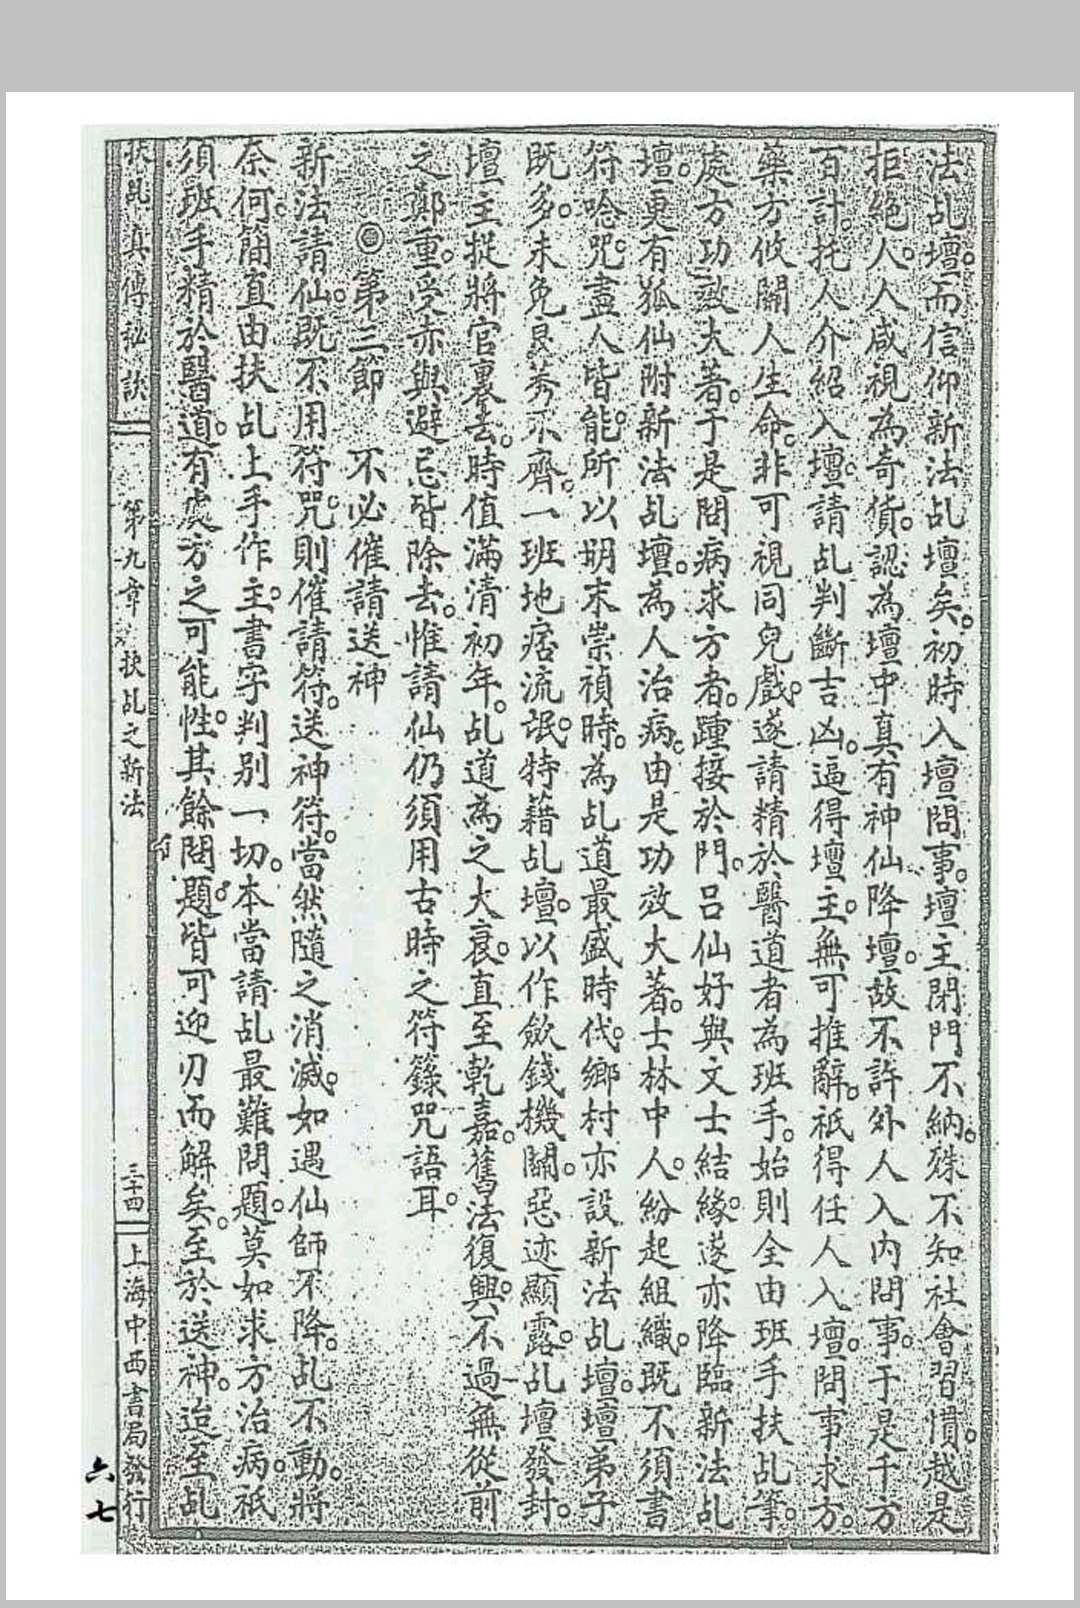 法乩壇。而信仰新法乩壇矣。初時入壇問事。壇主閉門不納。殊不知社會習慣。越是
拒絕。人人咸視為奇貨。認為壇中真有神仙降壇。故不許外人入內問事。于是千方
百計。托人介紹入壇。請乩判斷吉凶。逼得壇主。無可推辭。祇得任人入壇。問事求方。
藥方攸關人生命。非可視同兒戲。遂請精於醫道者為班手。始則全由班手扶乩筆。
處方功效大著。于是問病求方者。踵接於門。呂仙好與文士結緣。遂亦降臨新法乩
壇。更有狐仙附新法乩壇。為人治病。由是功效大著。士林中人。紛起組織。既不須書
符唸咒。盡人皆能。所以明末崇禎時。為乩道最盛時代。鄉村亦設新法乩壇。壇弟子
既多。未免良莠不齊。一班地痞流氓。特藉乩壇。以作斂錢機關。惡迹顯露。乩壇發封。
壇主捉將官裏去。時值滿清初年。乩道為之大衰。直至乾嘉。舊法復興。不過無從前
之鄭重。受亦與避忌皆除去。惟請仙仍須用古時之符籙咒語耳。
◎第三節　不必催請送神
新法請仙。既不用符咒。則催請符。送神符。當然隨之消滅。如遇仙師不降。乩不動。將
奈何。簡直由扶乩上手作主。書字判別一切。本當請乩最難問題。莫如求方治病。祇
須班手精於醫道。有處方之可能性。其餘問題。皆可迎刃而解矣。至於送神。迨至乩
扶乩真傳秘訣　第九章　扶乩之新法　三十四　上海中西書局發行
六七